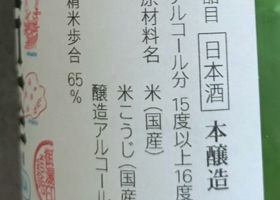 本醸造
品目 日本酒
アルコール分 15度以上16度
原材料名 米(国産)
米こうじ(国産
醸造アルコール
精米歩合 65%